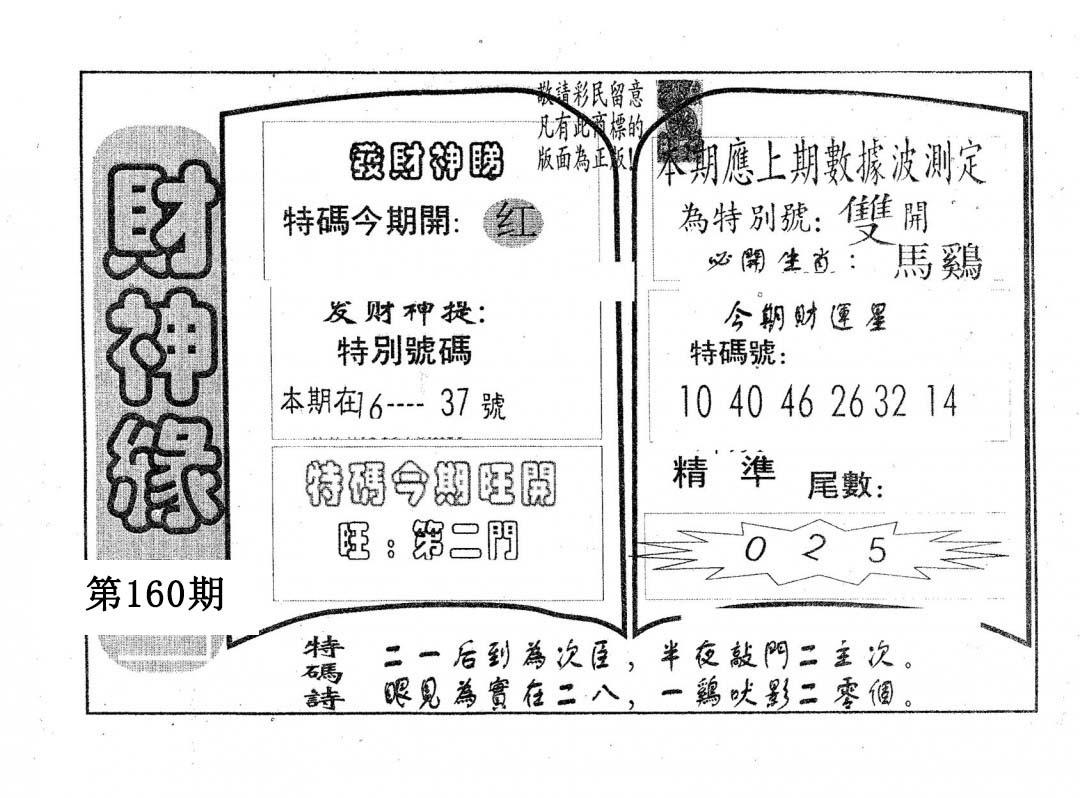 財神緣
第160期
敬請彩民留意
凡有此商標的
版面為正版!
發財神賜
特碼今期開: 红
发财神提:
特別號碼
本期在16---- 37 號
特碼今期旺開
旺:第二門
本期應上期數據波測定
為特別號: 雙 開
必開生肖: 馬鷄
今期財運星
特碼號:
10 40 46 26 32 14
精準 尾數:
0 2 5
特碼詩
二一后到為次臣,半夜敲門二主次。
眼見為實在二八,一鷄吠影二零個。